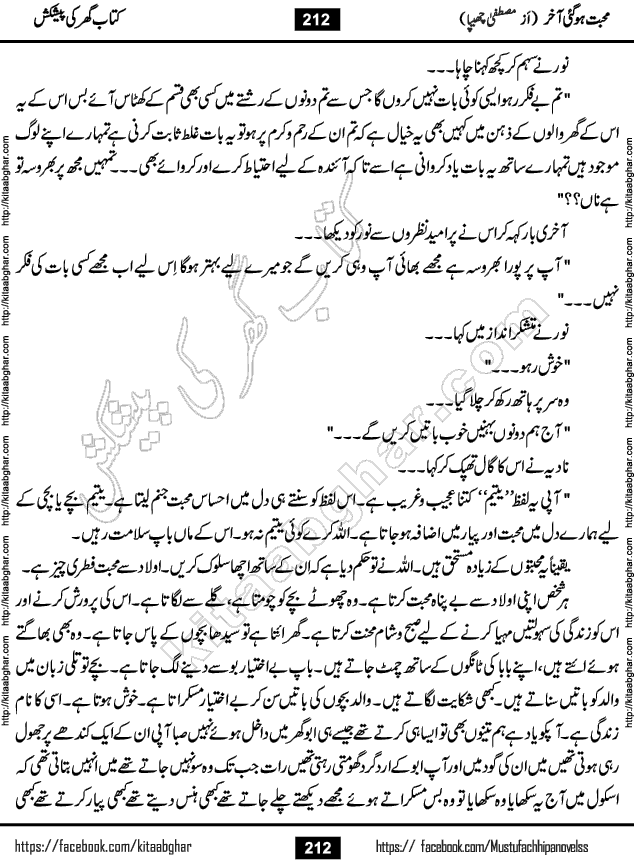 محبت ہو گئی آخر (از مصطفیٰ چھیپا) 212 کتاب گھر کی پیشکش
نور نے سہم کر کچھ کہنا چاہا۔۔۔
"تم بے فکر رہو ایسی کوئی بات نہیں کروں گا جس سے تم دونوں کے رشتے میں کسی بھی قسم کے کھٹاس آئے بس اس کے یہ
اس کے گھر والوں کے ذہن میں کہیں بھی یہ خیال ہے کہ تم ان کے رحم و کرم پر ہو تو یہ بات غلط ثابت کرنی ہے تمہارے اپنے لوگ
موجود ہیں تمہارے ساتھ یہ بات یاد کروانی ہے اسے تاکہ آئندہ کے لیے احتیاط کرے اور کروائے بھی۔۔۔ تمہیں مجھ پر بھروسہ تو
ہے ناں؟؟"
آخری بار کہہ کر اس نے پر امید نظروں سے نور کو دیکھا۔۔۔
"آپ پر پورا بھروسہ ہے مجھے بھائی آپ وہی کریں گے جو میرے لیے بہتر ہوگا اِس لیے اب مجھے کسی بات کی فکر
نہیں۔۔۔"
نور نے متشکر انداز میں کہا۔۔۔
"خوش رہو۔۔۔"
وہ سر پر ہاتھ رکھ کر چلا گیا۔۔۔
"آج ہم دونوں بہنیں خوب باتیں کریں گے۔۔۔"
نادیہ نے اس کا گال تھپک کر کہا۔۔۔
"آپی یہ لفظ ”یتیم“ کتنا عجیب و غریب ہے۔ اس لفظ کو سنتے ہی دل میں احساس محبت جنم لیتا ہے۔ یتیم بچے یا بچی کے
لیے ہمارے دل میں محبت اور پیار میں اضافہ ہو جاتا ہے۔ اللہ کرے کوئی یتیم نہ ہو۔ اس کے ماں باپ سلامت رہیں۔
یقیناً یہ محبتوں کے زیادہ مستحق ہیں۔ اللہ نے تو حکم دیا ہے کہ ان کے ساتھ اچھا سلوک کریں۔ اولاد سے محبت فطری چیز ہے۔
ہر شخص اپنی اولاد سے بے پناہ محبت کرتا ہے۔ وہ چھوٹے بچے کو چومتا ہے، گلے سے لگاتا ہے۔ اس کی پرورش کرنے اور
اس کو زندگی کی سہولتیں مہیا کرنے کے لیے صبح و شام محنت کرتا ہے۔ گھر ائتا ہے تو سیدھا بچوں کے پاس جاتا ہے۔ وہ بھی بھاگتے
ہوئے ائتے ہیں، اپنے بابا کی ٹانگوں کے ساتھ چمٹ جاتے ہیں۔ باپ بے اختیار بوسے دینے لگ جاتا ہے۔ بچے توتلی زبان میں
والد کو باتیں سناتے ہیں۔ کبھی شکایت لگاتے ہیں۔ والد بچوں کی باتیں سن کر بے اختیار مسکراتا ہے۔ خوش ہوتا ہے۔ اسی کا نام
زندگی ہے۔ آپکو یاد ہے ہم تینوں بھی تو ایسا ہی کرتے تھے جیسے ہی ابو گھر میں داخل ہوئے نہیں صبا آپی ان کے ایک کندھے پر جھول
رہی ہوتی تھیں میں ان کی گود میں اور آپ ابو کے ارد گرد گھومتی رہتی تھیں رات جب تک وہ سو نہیں جاتے تھے میں انہیں بتاتی تھی کہ
اسکول میں آج یہ سکھایا وہ سکھایا تو وہ بس مسکراتے ہوئے مجھے دیکھتے چلے جاتے تھے کبھی ہنس دیتے تھے کبھی پیار کرتے تھے کبھی
https://facebook.com/kitaabghar 212 https:// facebook.com/Mustufachhipanovelss
کتاب گھر کی پیشکش
kitaabghar.com
http://kitaabghar.com http://kitaabghar.com http://kitaabghar.com http://kitaabghar.com http://kitaabghar.com http://kitaabghar.com
http://kitaabghar.com http://kitaabghar.com http://kitaabghar.com http://kitaabghar.com http://kitaabghar.com http://kitaabghar.com